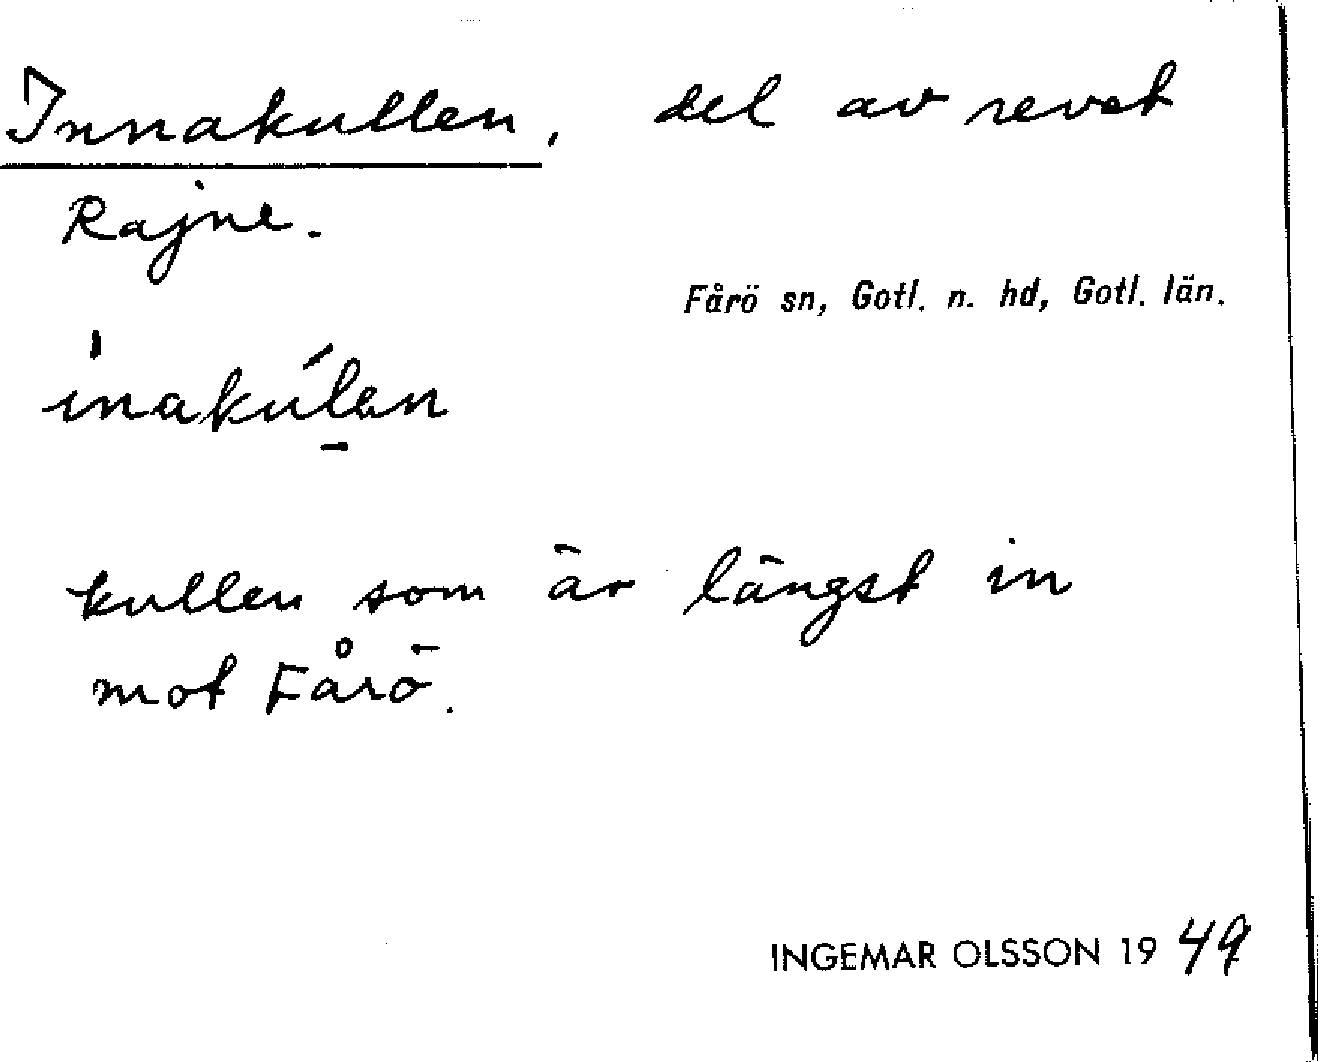 Innakullen, del av revet
Rajne.
Fårö sn, Gotl. n. hd, Gotl. län.
ìnakúlen
kullen som är längst in
mot Fårö.
INGEMAR OLSSON 1949